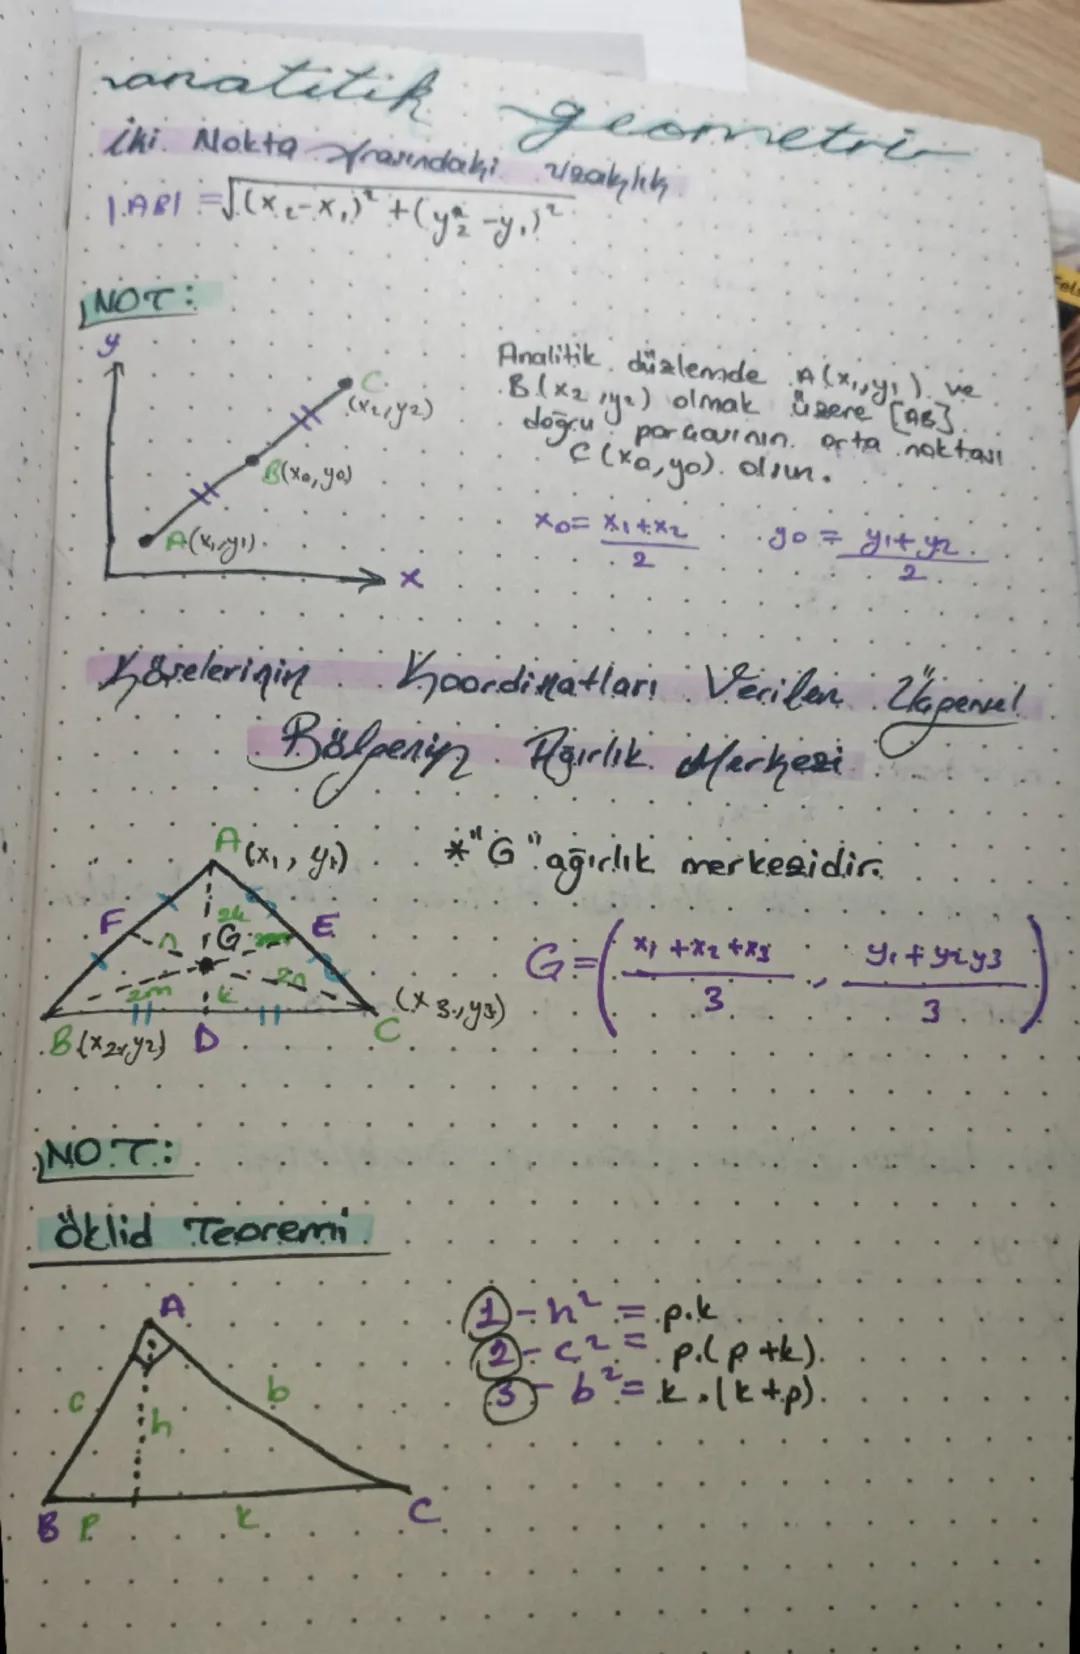 analitik geometri
İki Nokta Arasındaki Uzaklık
|AB| = √(x₂-x₁)² + (y₂-y₁)²
NOT:
y
C
(x₂, y₂)
B(x₀, y₀)
A(x₁, y₁)
x
Analitik düzlemde A(x₁, y₁) ve
B(x₂, y₂) olmak üzere [AB]
doğru parçasının orta noktası
C(x₀, y₀) olsun.
x₀ = x₁+x₂ / 2 y₀ = y₁+y₂ / 2
Köşelerinin Koordinatları Verilen Üçgensel
Bölgenin Ağırlık Merkezi
A(x₁, y₁)
F
E
2k
n
G
2m
k
2n
B(x₂, y₂)
D
C
(x₃, y₃)
*"G" ağırlık merkezidir.
G = (x₁+x₂+x₃ / 3, y₁+y₂y₃ / 3)
NOT:
Öklid Teoremi
A
c
b
h
B
p
k
C
1 - h² = p.k
2 - c² = p.(p+k).
3 - b² = k.(k+p).